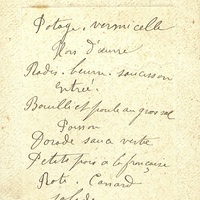 Potage. vermicelle
Hors d'œuvre
Radis. beurre. saucisson
Entrée.
Bouilli et poule au gros sel
Poisson
Dorade sauce verte
Petits pois à la française
Roti. Canard
salade